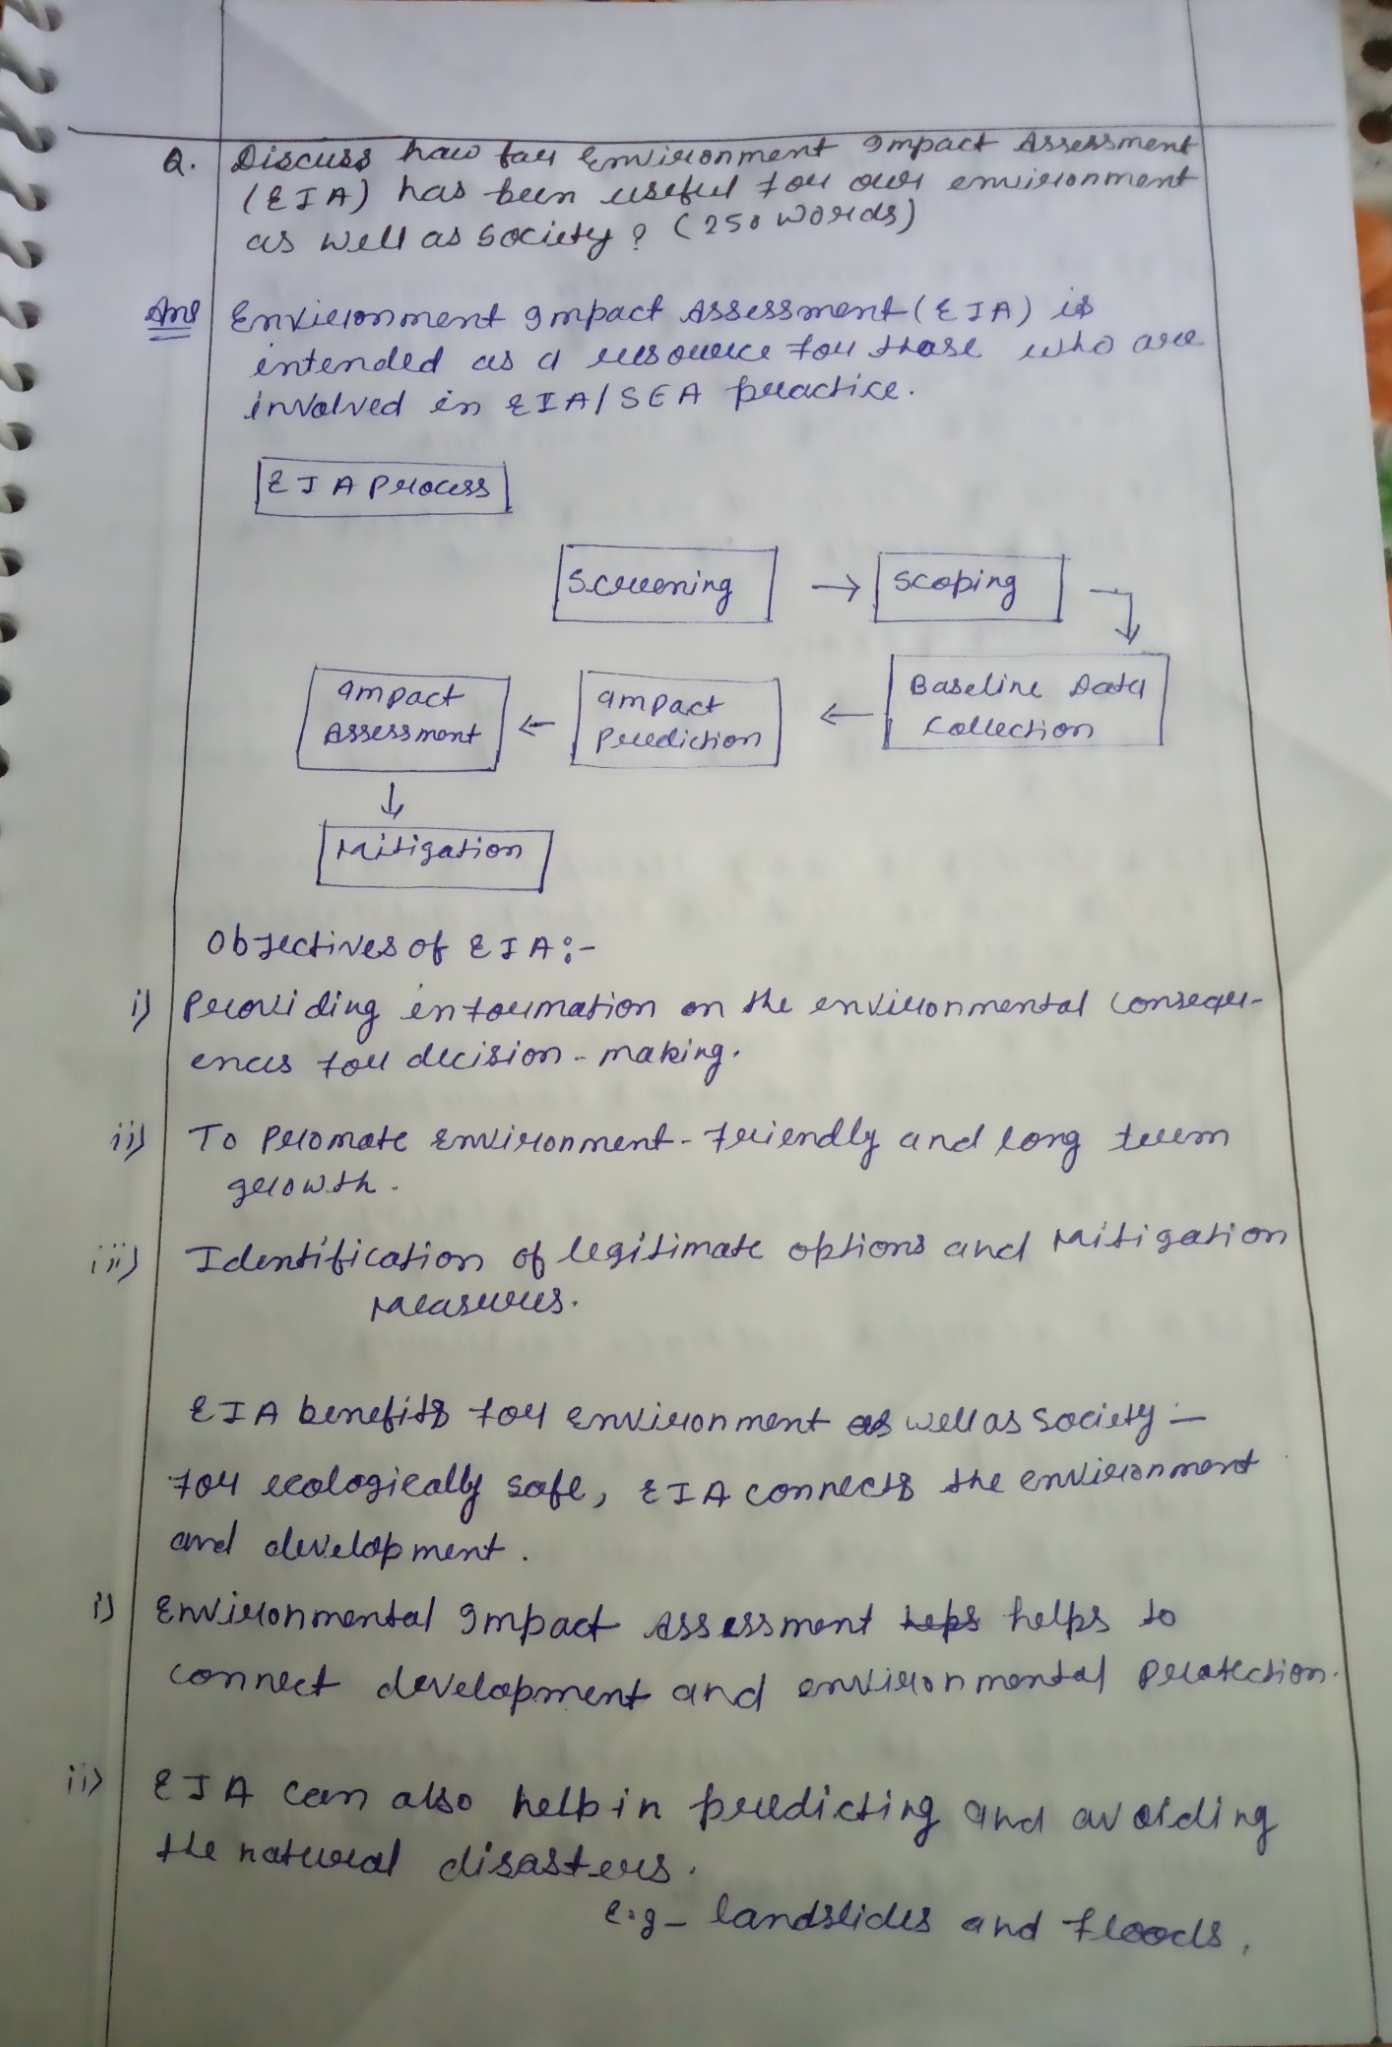 Q. Discuss how far Environment Impact Assessment
(EIA) has been useful for our environment
as well as society? (250 words)
Ans Environment Impact Assessment (EIA) is
intended as a resource for those who are
involved in EIA/SEA practice.
EIA Process
Screening → Scoping
Impact Assessment ← Impact Prediction ← Baseline Data Collection
↓
Mitigation
Objectives of EIA:-
i) Providing information on the environmental consequ-
ences for decision-making.
ii) To Promote Environment-friendly and long term
growth.
iii) Identification of legitimate options and Mitigation
Measures.
EIA benefits for environment as well as society :-
for ecologically safe, EIA connects the environment
and development.
i) Environmental Impact Assessment helps to
connect development and environmental protection.
ii) EIA can also help in predicting and avoiding
the natural disasters.
e.g- landslides and floods.